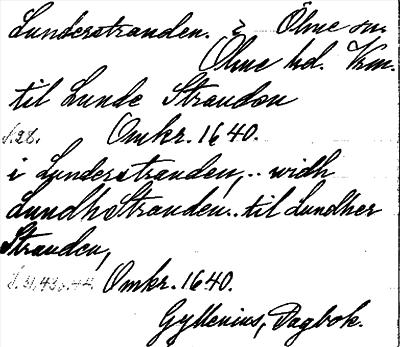 Lunderstranden. i Ölme sn.
Ölme hd. Vrm.
til Lunde Strandon
s. 28. Omkr. 1640.
i Lunderstranden,.. widh
LundhStranden.. til Lundher
Stranden,
Omkr. 1640.
Gyllenius, Dagbok.